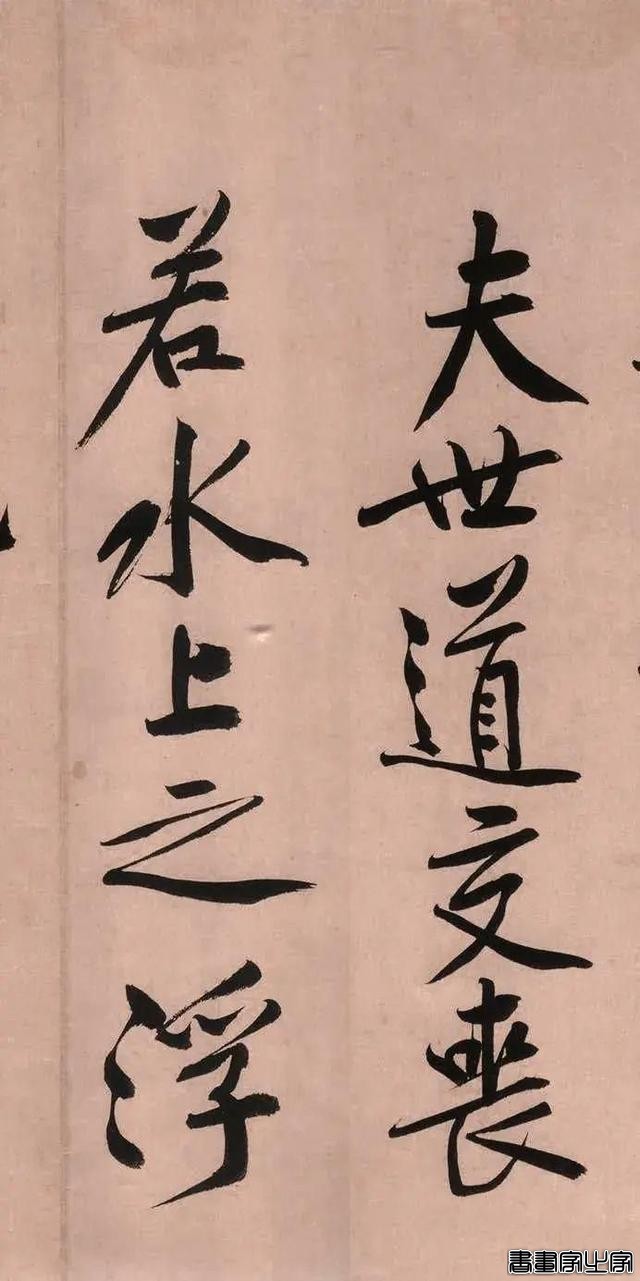 夫世道交喪
若水上之浮
書畫家之家